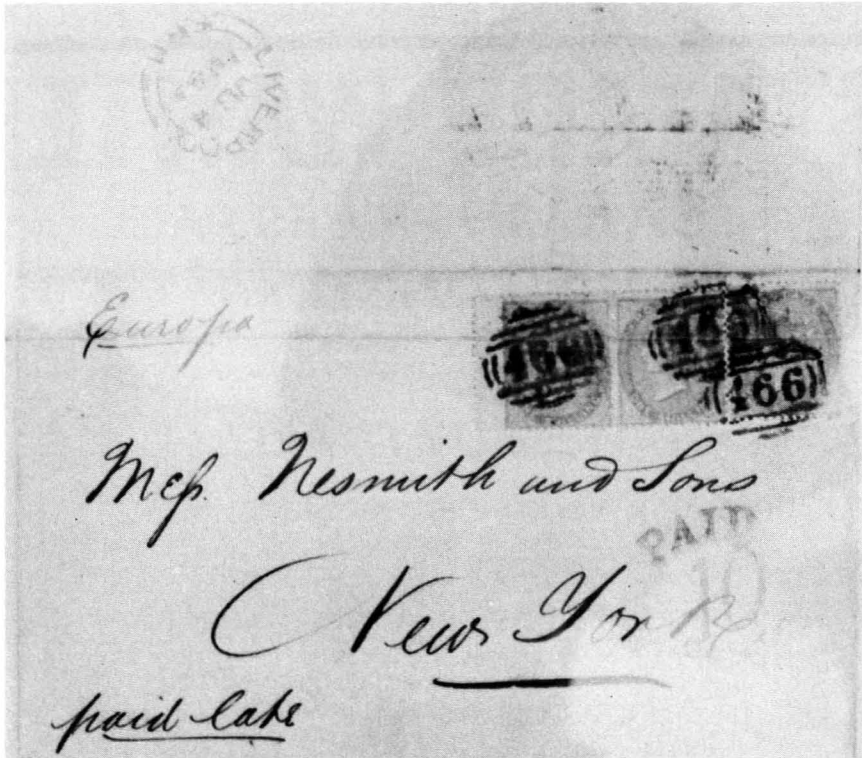 LIVERPOOL
Europa
466
466
466
Mess. Nesmith and Sons
PAID
10
New York
paid late